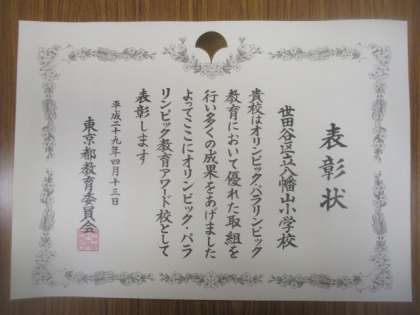 表彰状
世田谷区立八幡山小学校
貴校はオリンピック・パラリンピック
教育において優れた取組を
行い多くの成果をあげました
よってここにオリンピック・パラ
リンピック教育アワード校として
表彰します
平成二十九年四月十三日
東京都教育委員会